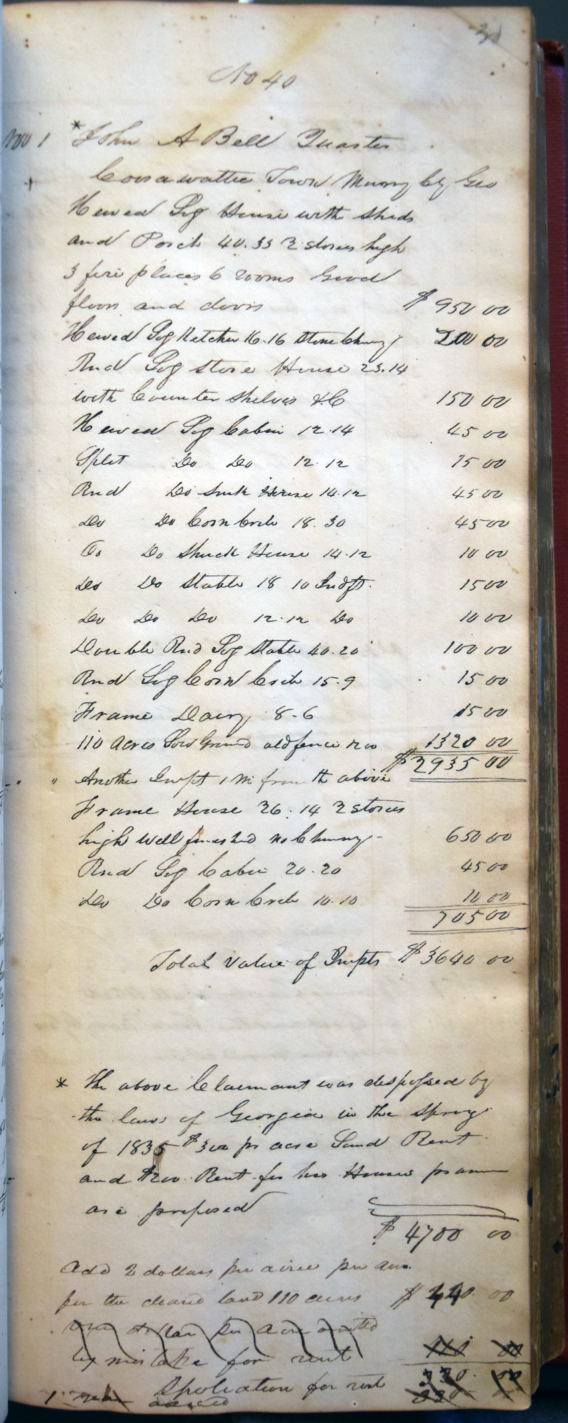 No 40
* John A Bell Quarter
Coosawattie Town Murry Cty Geo
Hewed Log House with Sheds
and Porch 40.33 2 stores high
3 fire places 6 rooms Good
floors and doors $ 950 00
Hewed Log Kitchen 16.16 Stone Chimy 00
Rnd Log Store House 23.14
with Counter Shelves &C 150 00
Hewed Log Cabin 12.14 45 00
Split Do Do 12.12 00
Rnd Do Smk House 14.12 45 00
Do Do Corn Crib 18.30 45 00
Do Do Shuck House 14.12 10 00
Do Do Stable 18 10 15 00
Do Do Do 12.12 Do 10 00
Double Rnd Log Stable 40.20 100 00
Rnd Log Corn Crib 15.9 15 00
Frame Dairy 8.6 15 00
110 Acres Low Ground old fence 1320 00
$ 2935 00
" Another Impt 1 M from th above
Frame House 26.14 2 stores
high well finished no Chimny 650 00
Rnd Log Cabin 20.20 45 00
Do Do Corn Crib 10.10 10 00
705 00
Total Value of Impts $ 3640 00
* the above Claimant was disposed by
the laws of Georgia in the Spring
of 1835 pr acre Land Rent
and Rent for his House pr annum
as proposed
$ 4700 00
Add 2 dollars per acree per ann
for the cleared land 110 acres $ 00
per Acre
by mistake for rent
Spoliation for rent